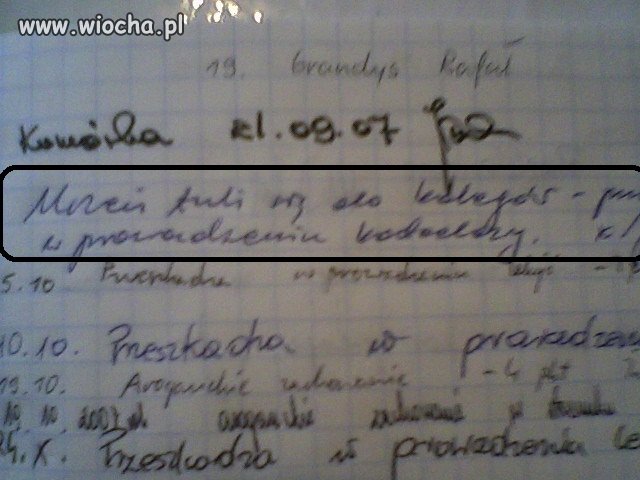 www.wiocha.pl
19. Grandys Rafał
Komórka 21.09.07
Marcin tuli się do kolegów -
w prowadzeniu katechezy.
5.10 w prowadzeniu lekcji
10.10. Przeszkadza w prowadzeniu
19.10. Aroganckie zachowanie - 4 pkt
19.10.2007r. aroganckie zachowanie w
24.X. Przeszkadza w prowadzeniu le